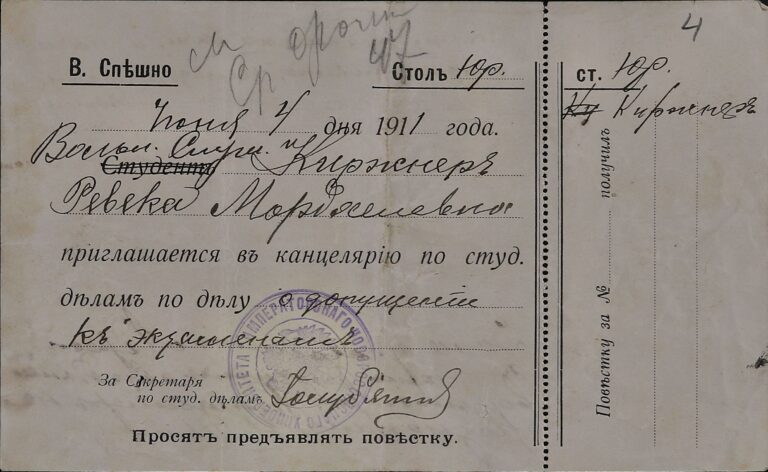 4
В. Спѣшно
Столъ Юр.
Июня 4 дня 1911 года.
Вольн. Слуш.
Студентъ Киржнеръ
Ревека Мордхелевна
приглашается въ канцелярію по студ.
дѣламъ по дѣлу о допущеніи
къ экзаменамъ
За Секретаря
по студ. дѣламъ
Просятъ предъявлять повѣстку.
ИМПЕРАТОРСКАГО НОВОРОССІЙСКАГО УНИВЕРСИТЕТА
ст. Юр.
Киржнеръ
Повѣстку за № получилъ